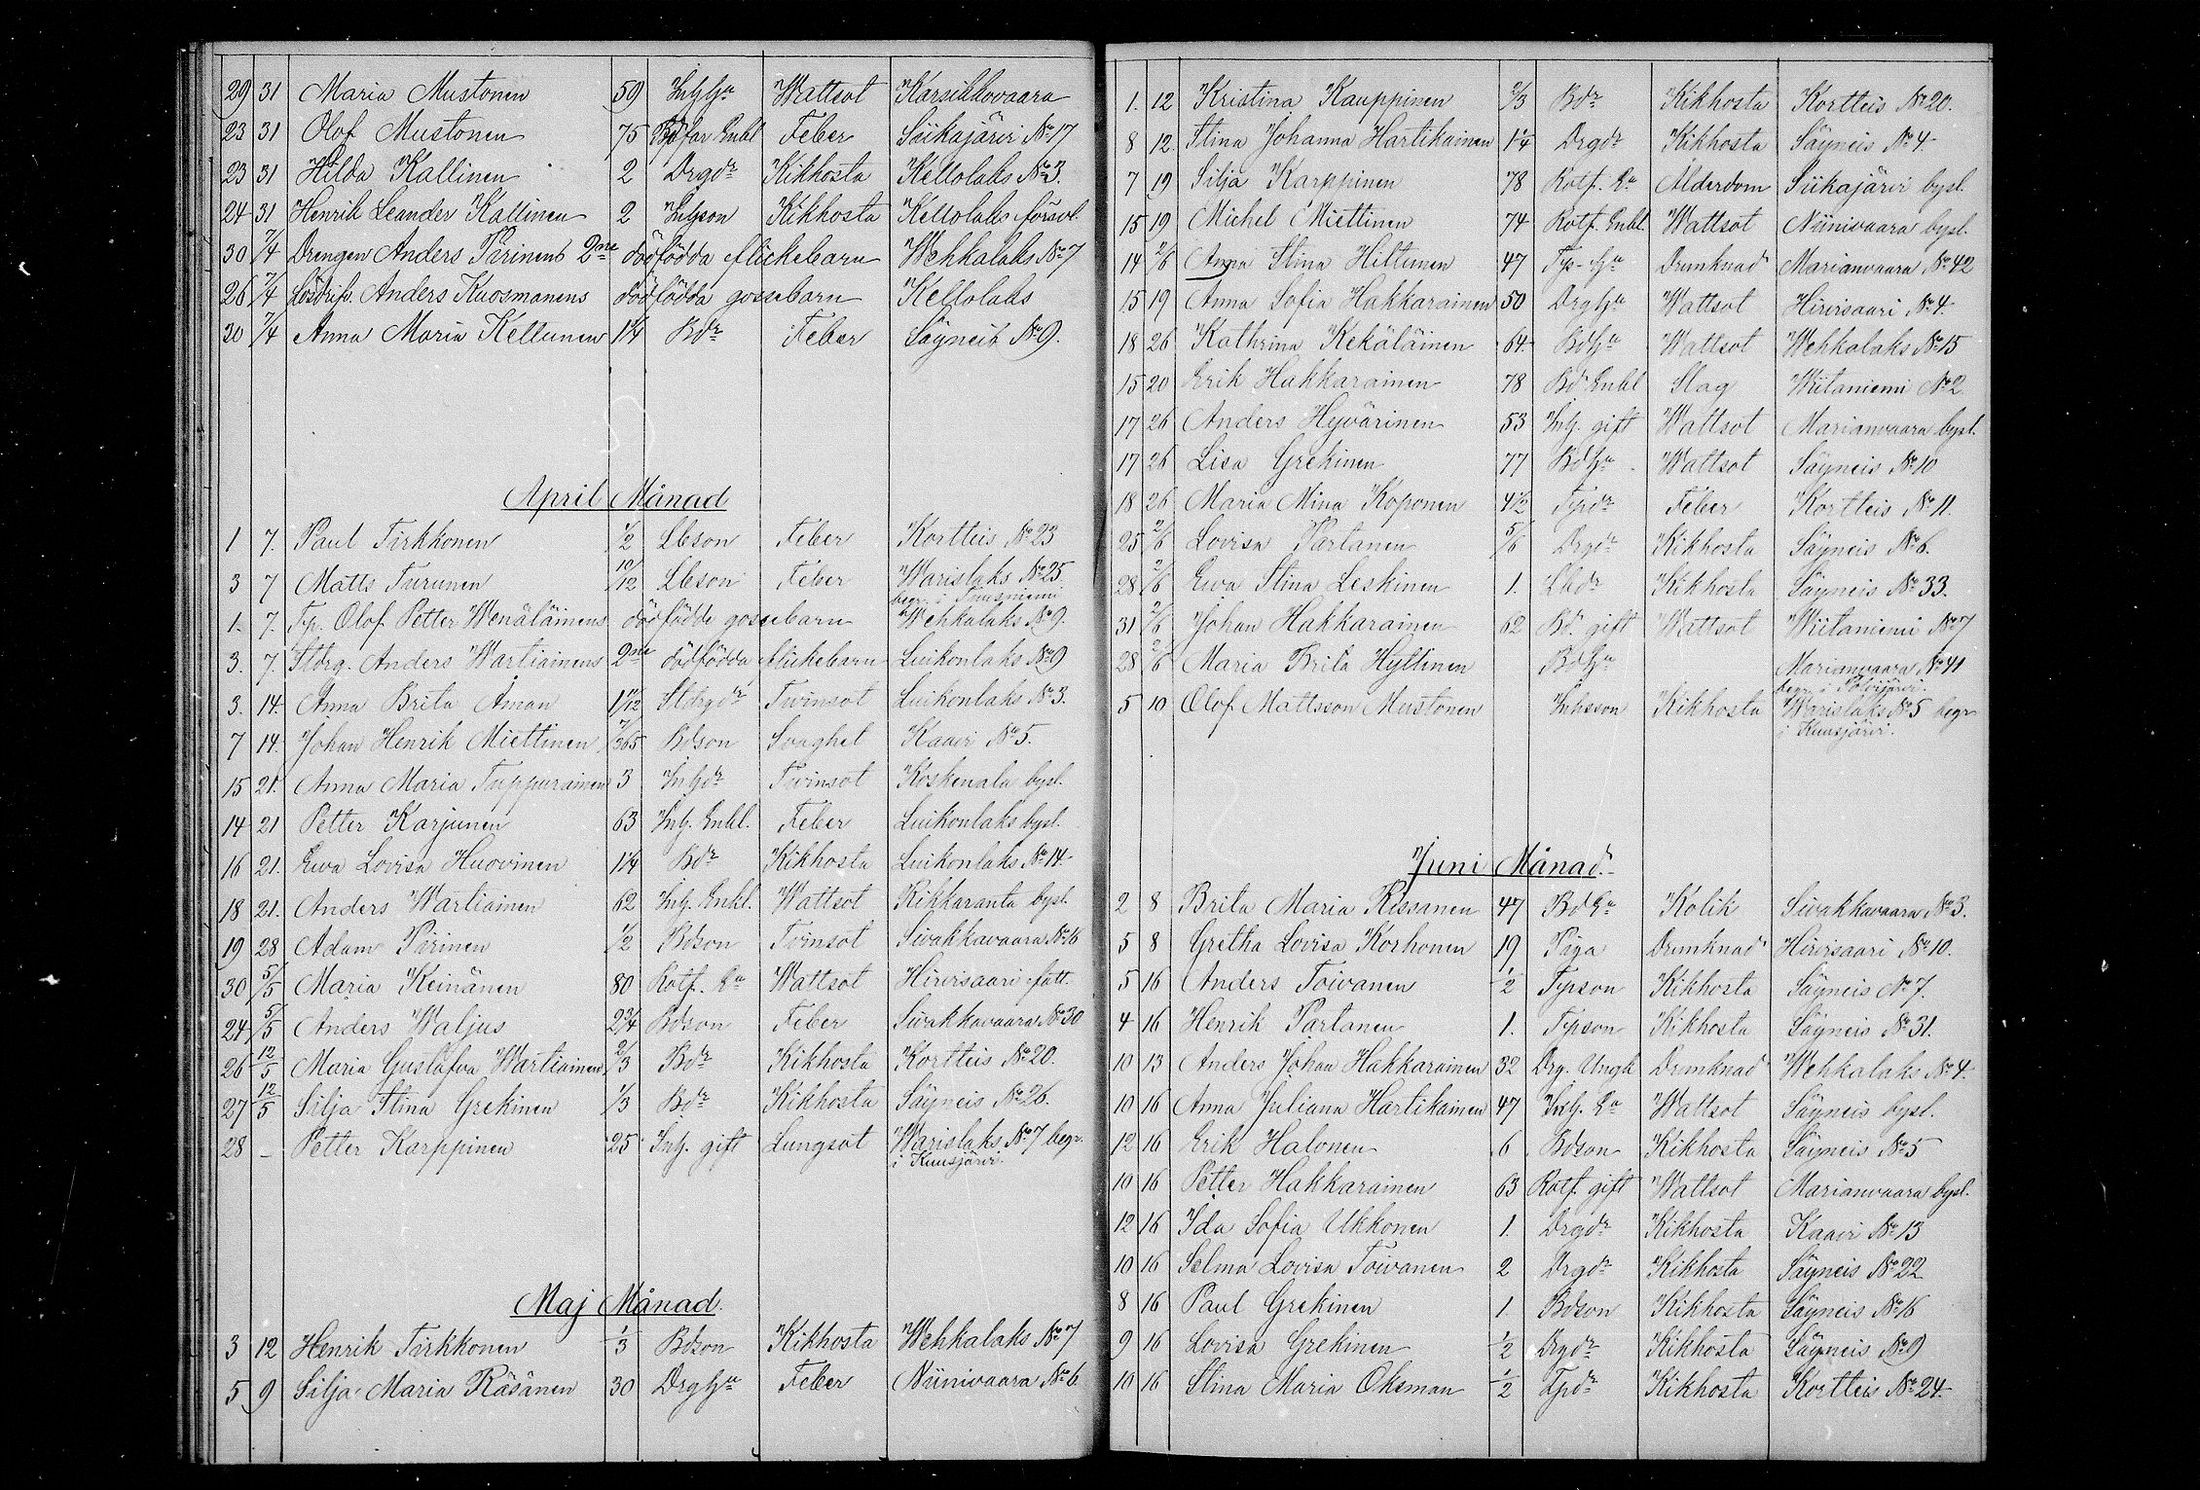 29 31 Maria Mustonen 59 InhHu Wattsot Karsikkovaara
23 31 Olof Mustonen 75 Bdfar Enkl Feber Siikajärvi No 17
23 31 Hilda Kallinen 2 Drgdr Kikhosta Kellolaks No 3.
24 31 Henrik Leander Kallinen 2 Inhson Kikhosta Kellolaks försvl.
30 7/4 Drengen Anders Pärinens 2ne dödfödda flickebarn Wehkalaks No 7
26 7/4 Lösdrifv. Anders Kuosmanens dödfödda gossebarn Kellolaks
30 7/4 Anna Maria Keltunen 1 1/4 Bdr Feber Säyneis No 9.
April Månad
1 7. Paul Tirkkonen 1/2 Lbson Feber Kortteis No 23
3 7 Matts Turunen 10/12 Lbson Feber Warislaks No 25.
begr. i Tuusniemi
1. 7. Tp. Olof Petter Wenäläinens dödfödde gossebarn Wehkalaks No 9.
3. 7. Stdrg. Anders Wartiainens 2ne dödfödda flickebarn Luikonlaks No 9
3. 14. Anna Brita Aman 1 11/12 Stdrgdr Tvinsot Luikonlaks No 3.
7 14. Johan Henrik Miettinen 7/365 Bdson Svaghet Kaavi No 5.
15 21. Anna Maria Tuppurainen 3 Inhdr Tvinsot Koskenala bysl.
14 21 Petter Karjunen 63 Inh. Enkl. Feber Luikonlaks bysl.
16 21. Ewa Lovisa Huovinen 1 1/4 Bdr Kikhosta Luikonlaks No 14.
18 21. Anders Wartiainen 62 Inh. Enkl. Wattsot Rikkaranta bysl.
19 28 Adam Pirinen 1/2 Bdson Tvinsot Sivakkavaara No 16
30 5/5 Maria Keinänen 80 Rotf. Ea Wattsot Hirvisaari fatt.
24 5/5 Anders Waljus 2 3/4 Bdson Feber Sivakkavaara No 30
26 12/5 Maria Gustafva Wartiainen 2/3 Bdr Kikhosta Kortteis No 20.
27 12/5 Silja Stina Grekinen 1/3 Bdr Kikhosta Säyneis No 26.
28 – Petter Karppinen 25 Inh. gift Lungsot Warislaks No 7 begr.
i Kuusjärvi.
Maj Månad.
3 12 Henrik Tirkkonen 1/3 Bdson Kikhosta Wehkalaks No 7
5 9 Silja Maria Räsänen 30 DrgHu Feber Niinivaara No 6
1. 12 Kristina Kauppinen 2/3 Bdr Kikhosta Kortteis No 20.
8 12. Stina Johanna Hartikainen 1 1/4 Drgdr Kikhosta Säyneis No 4.
7 19 Silja Karppinen 78 Rotf. Ea Ålderdom Siikajärvi bysl.
15 19 Michel Miettinen 74 Rotf. Enkl. Wattsot Niinivaara bysl.
14 2/6 Anna Stina Hiltunen 47 Tp-Hu Drunknad Marianvaara No 42
15 19 Anna Sofia Hakkarainen 50 DrgHu Wattsot Hirvisaari No 4.
18 26 Kathrina Kekäläinen 64. BdHu Wattsot Wehkalaks No 15
15 20 Erik Hakkarainen 78 Bd Enkl Slag Wiitaniemi No 2
17 26 Anders Hyvärinen 53 Inh. gift Wattsot Marianvaara bysl.
17 26 Lisa Grekinen 77 BdHu Wattsot Säyneis No 10
18 26 Maria Mina Koponen 4 1/2 Tpdr Feber Kortteis No 11.
25 2/6 Lovisa Partanen 5/6 Drgdr Kikhosta Säyneis No 6.
28 2/6 Ewa Stina Leskinen 1. Lbdr Kikhosta Säyneis No 33.
31 2/6 Johan Hakkarainen 62 Bd. gift Wattsot Wiitaniemi No 7
28 2/6 Maria Brita Hyttinen BdHu Marianvaara No 41
begr. i Polvijärvi.
5 10 Olof Mattsson Mustonen Inhsson Kikhosta Warislaks No 5 begr
i Kuusjärvi.
Juni Månad.
2 8 Brita Maria Rissanen 47 BdEa Kolik Sivakkavaara No 3.
5 8 Gretha Lovisa Korhonen 19 Piga Drunknad Hirvisaari No 10.
5 16 Anders Toivanen 1/2 Tpson Kikhosta Säyneis No 7.
4 16 Henrik Partanen 1. Tpson Kikhosta Säyneis No 31.
10 13 Anders Johan Hakkarainen 32 Drg. Ungk Drunknad Wehkalaks No 4.
10 16 Anna Juliana Hartikainen 47 Inh. Ea Wattsot Säyneis bysl.
12 16 Erik Halonen 6 Bdson Kikhosta Säyneis No 5
10 16 Petter Hakkarainen 63 Rotf. gift Wattsot Marianvaara bysl.
12 16 Ida Sofia Ukkonen 1. Drgdr Kikhosta Kaavi No 13
10 16 Selma Lovisa Toivanen 2 Drgdr Kikhosta Säyneis No 22
8 16 Paul Grekinen 1 Bdson Kikhosta Säyneis No 16
9 16 Lovisa Grekinen 1/2 Drgdr Kikhosta Säyneis No 9
10 16 Stina Maria Oksman 1/2 Tpdr Kikhosta Kortteis No 24.